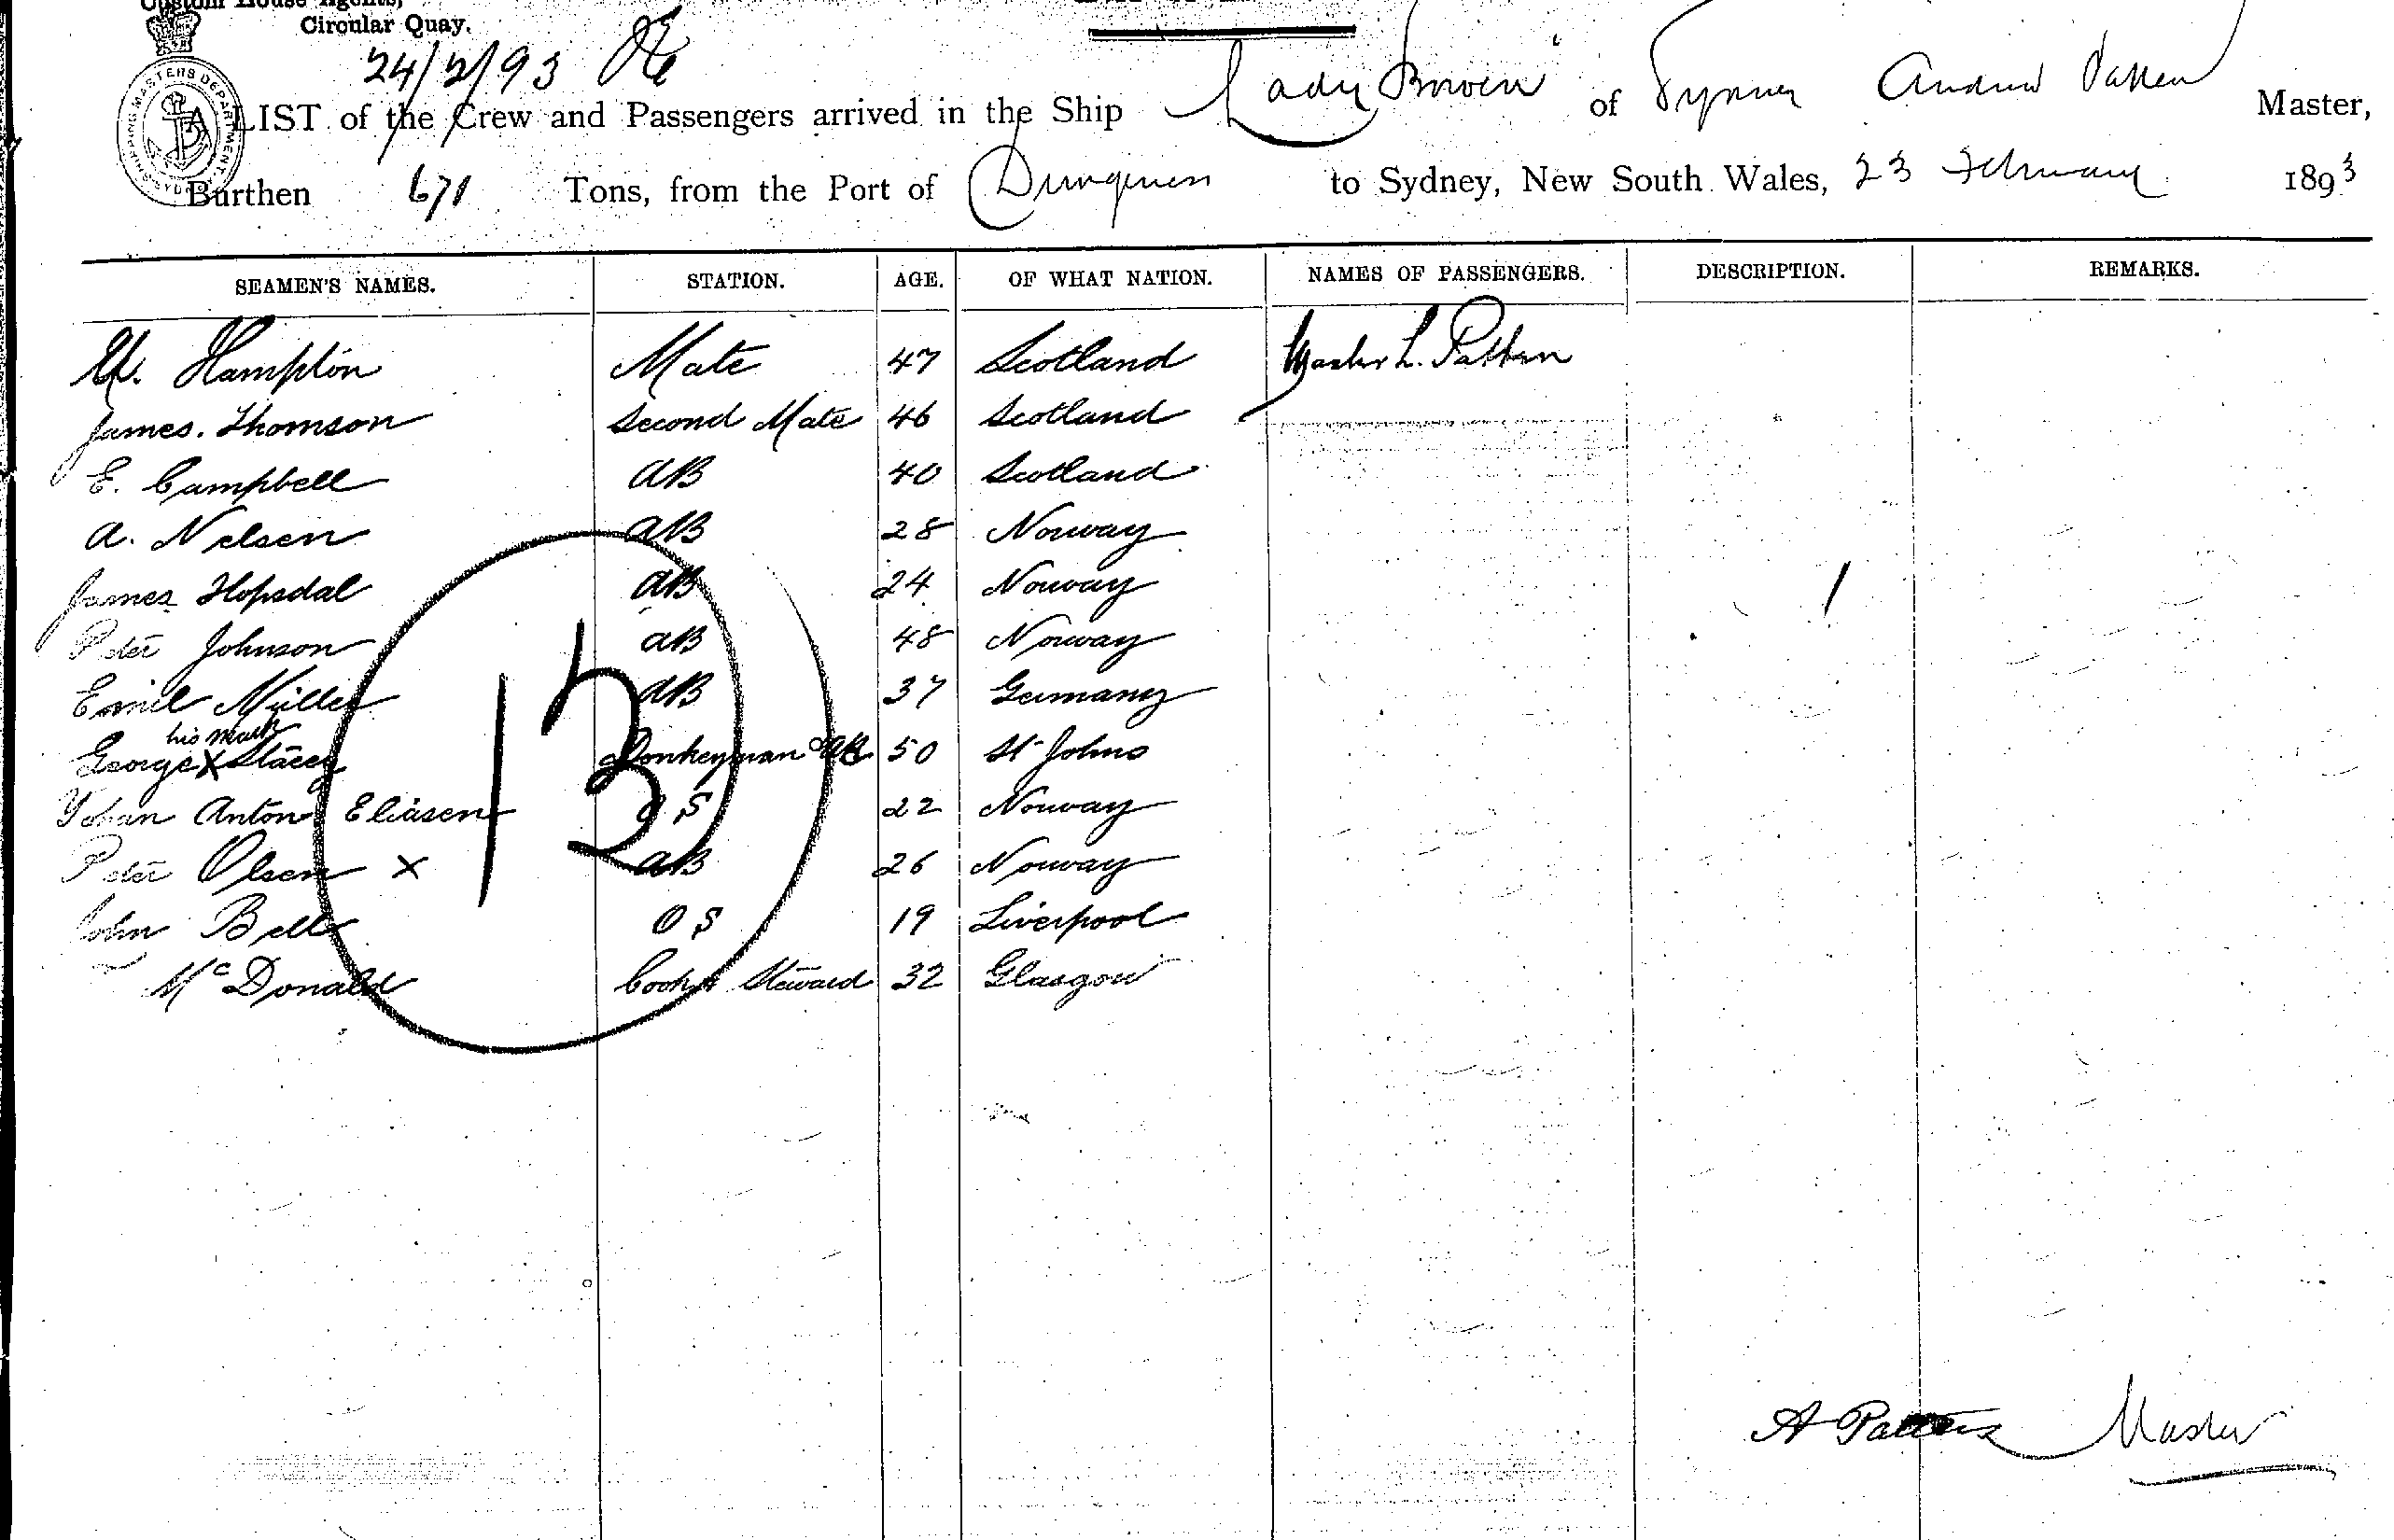 Custom House Agents,
Circular Quay.
24/2/93
SHIPPING MASTERS DEPARTMENT SYDNEY
A LIST of the Crew and Passengers arrived in the Ship Lady Bowen of Sydney Andrew Patten Master,
Burthen 671 Tons, from the Port of Dungeness to Sydney, New South Wales, 23 February 1893
SEAMEN'S NAMES. STATION. AGE. OF WHAT NATION. NAMES OF PASSENGERS. DESCRIPTION. REMARKS.
Hampton Mate 47 Scotland Master L. Patten
James. Thomson Second Mate 46 Scotland
E. Campbell AB 40 Scotland
A. Nelsen AB 28 Norway
James Hopsdal AB 24 Norway
Peter Johnson AB 48 Norway
Emil Müller AB 37 Germany
his mark
George X Stacey Donkeyman & AB 50 St Johns
Johan Anton Eliasen O S 22 Norway
Peter Olsen X AB 26 Norway
John Bell O S 19 Liverpool
McDonald Cook & Steward 32 Glasgow
13
A Patten Master